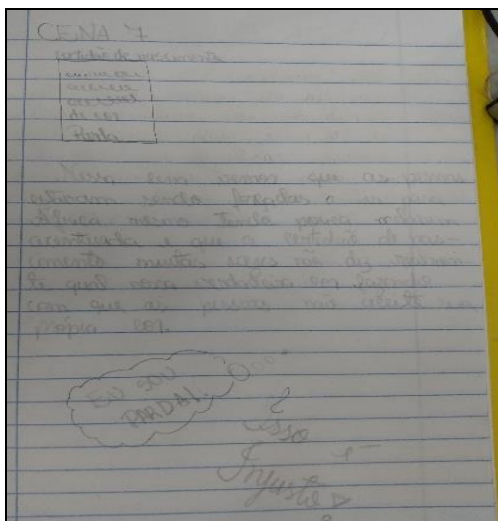 CENA 7
certidão de nascimento
de cor
Parda
Nessa cena vemos que as pessoas
estavam sendo forçadas a ir para
África mesmo tendo pouca melanina
acentuada e que a certidão de nas-
cimento muitas vezes não diz
qual sua verdadeira cor fazendo
com que as pessoas não na
própria cor.
EU SOU
PARDA!
isso
é
Injusto